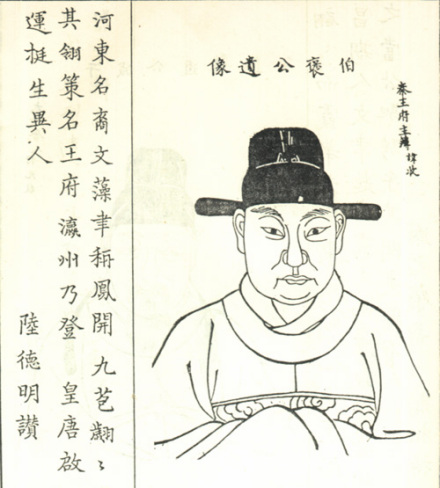 秦王府主簿諱收
伯褒公遺像
河東名裔文藻聿稱鳳開九苞翽〻
其翎策名王府瀛州乃登 皇唐啟
運挺生異人
陸德明讚